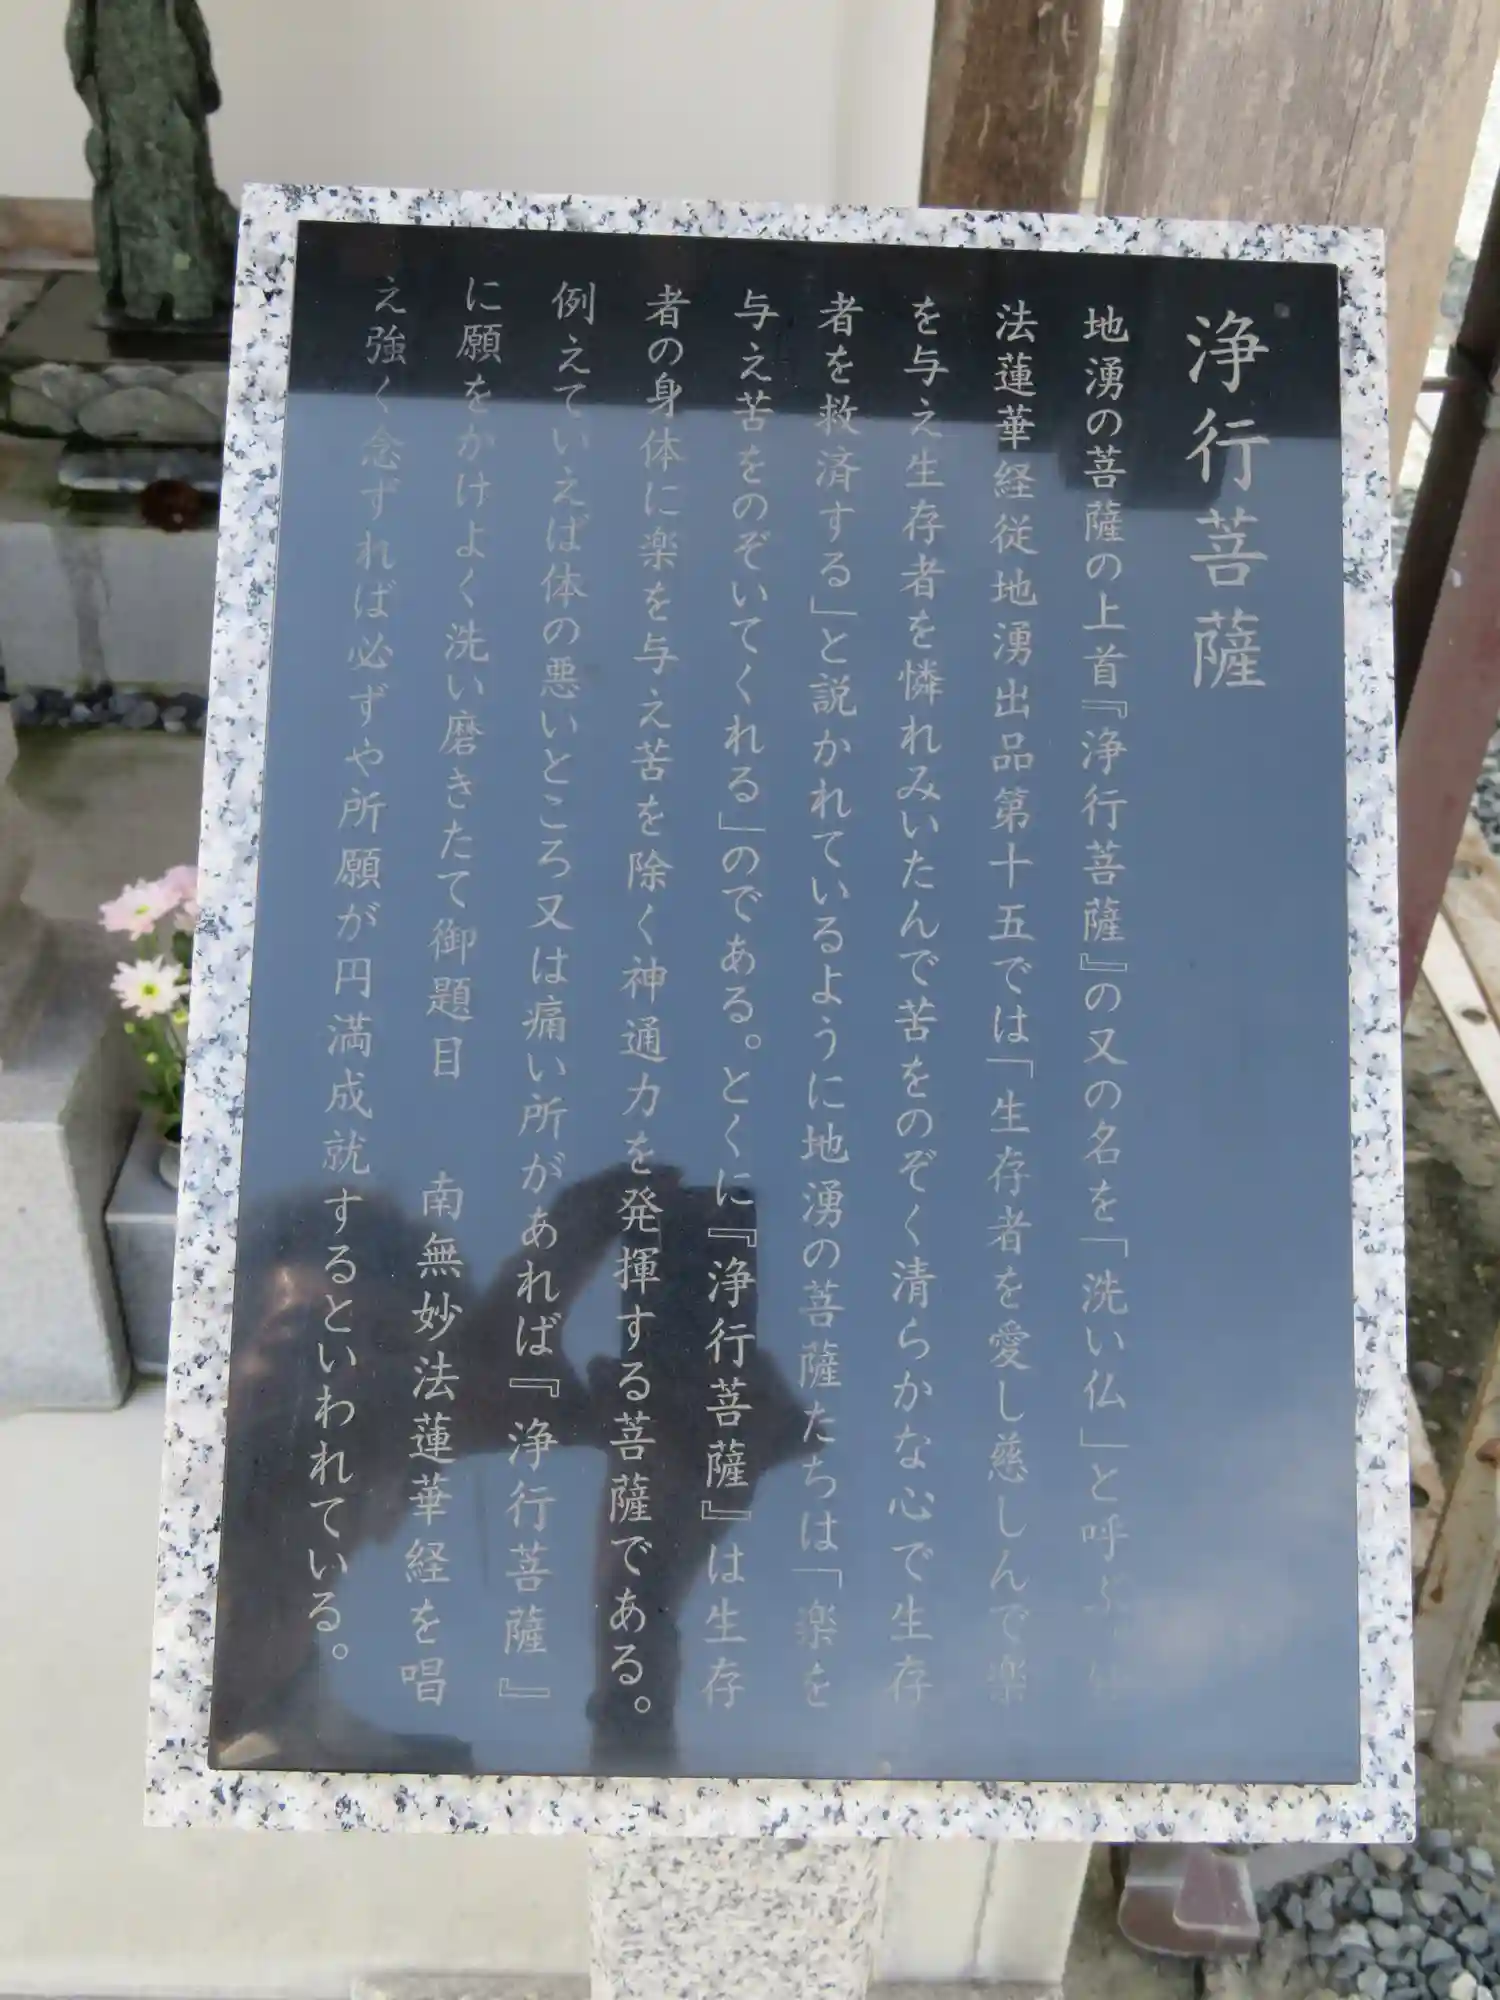 浄行菩薩
地湧の菩薩の上首『浄行菩薩』の又の名を「洗い仏」と呼ぶ。妙
法蓮華経従地湧出品第十五では「生存者を愛し慈しんで楽
を与え生存者を憐れみいたんで苦をのぞく清らかな心で生存
者を救済する」と説かれているように地湧の菩薩たちは「楽を
与え苦をのぞいてくれる」のである。とくに『浄行菩薩』は生存
者の身体に楽を与え苦を除く神通力を発揮する菩薩である。
例えていえば体の悪いところ又は痛い所があれば『浄行菩薩』
に願をかけよく洗い磨きたて御題目　南無妙法蓮華経を唱
え強く念ずれば必ずや所願が円満成就するといわれている。